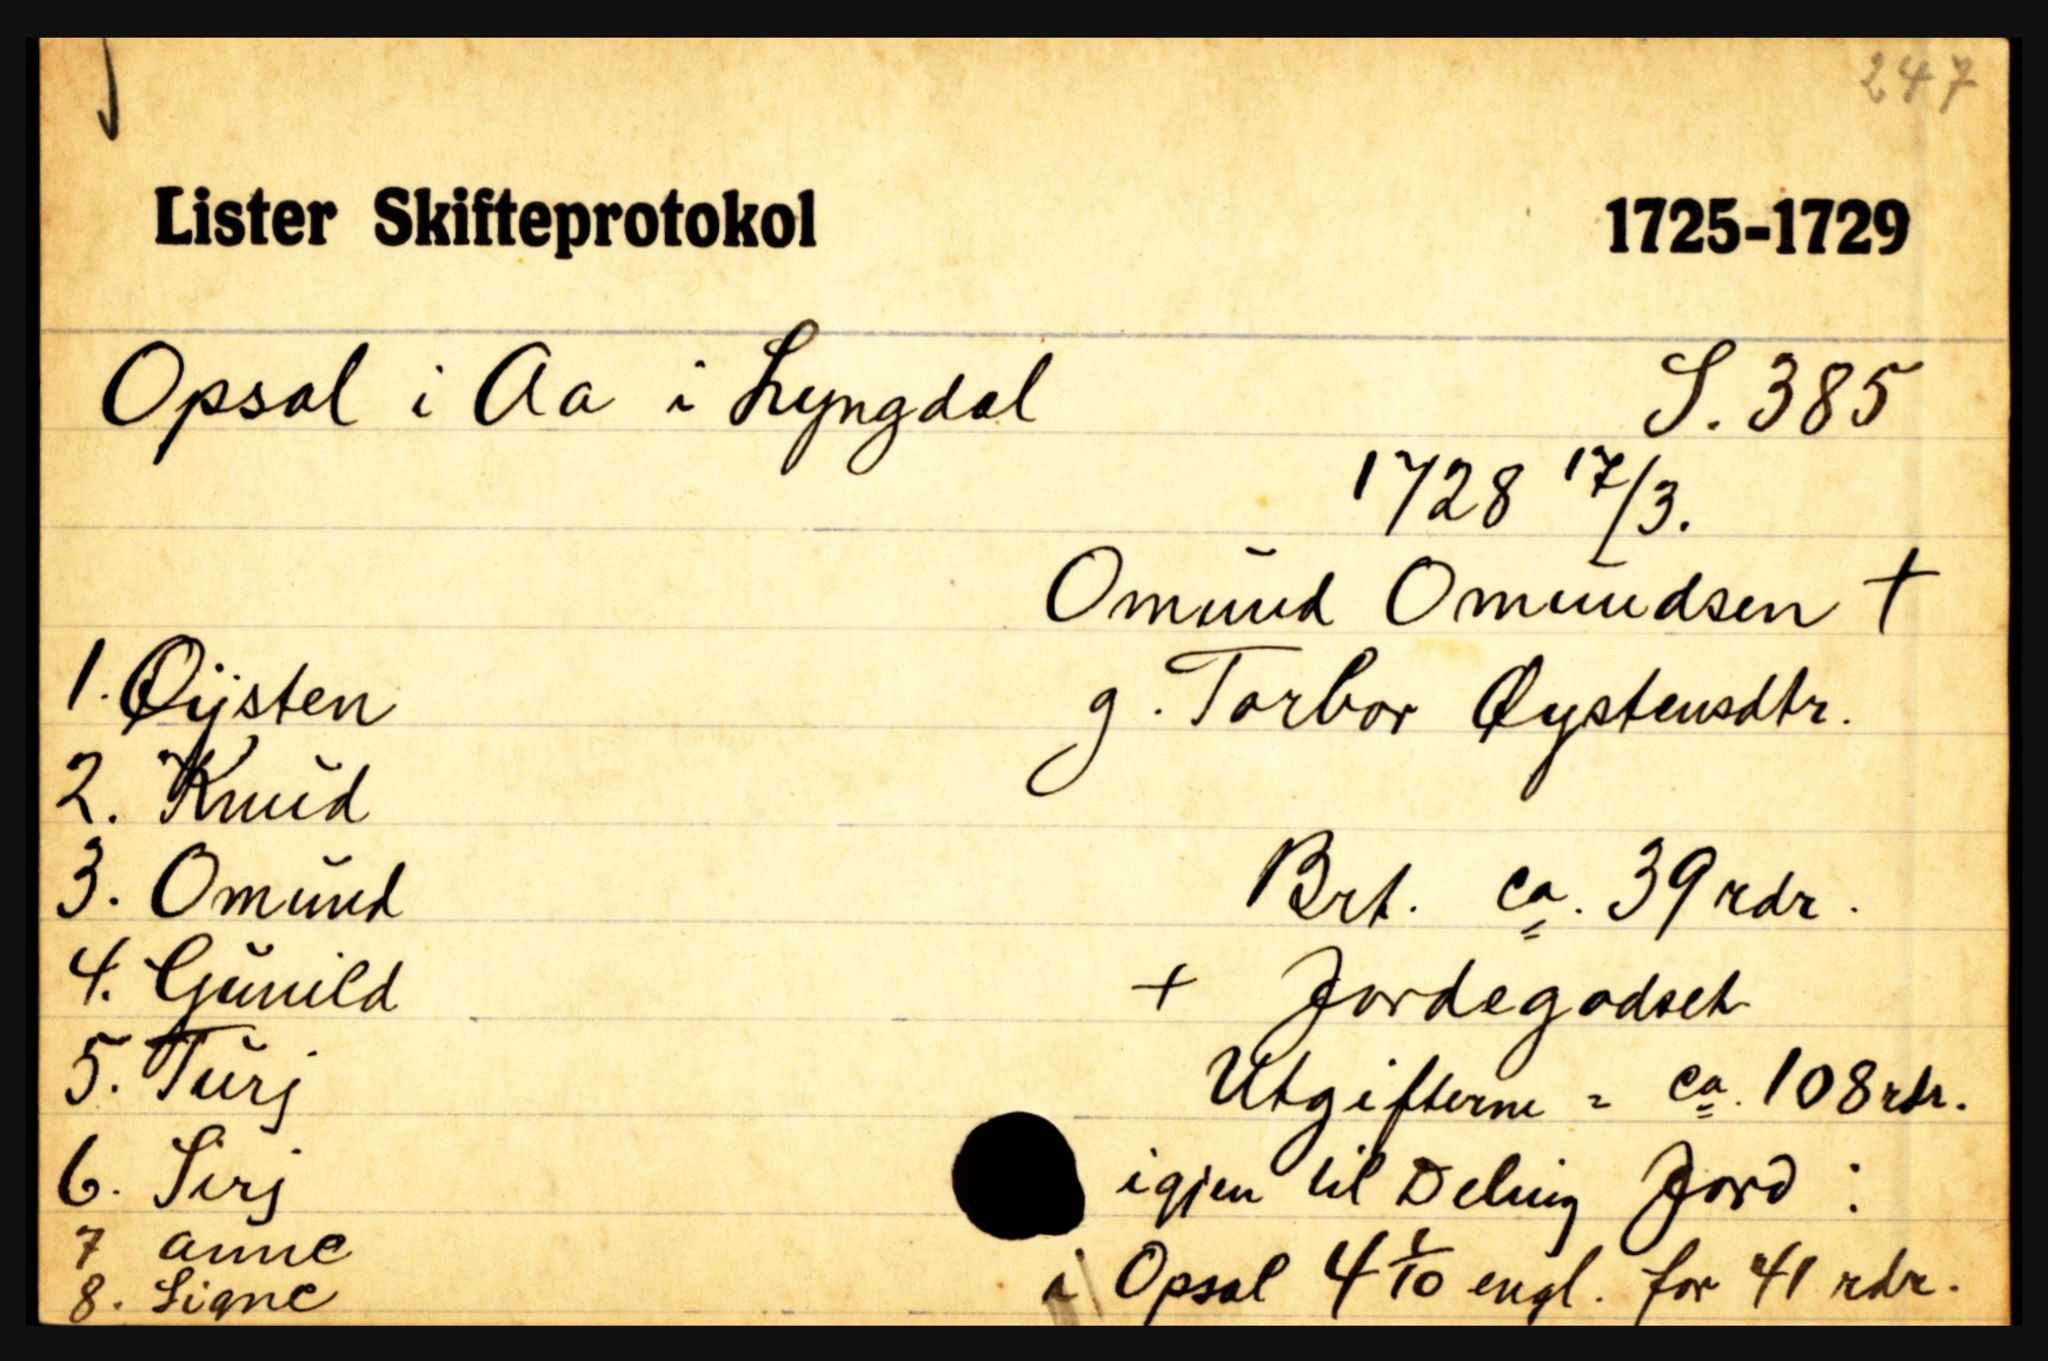 247
Lister Skifteprotokol 1725-1729
Opsal i Aa i Lyngdal S. 385
1728 17/3.
Omŭnd Omŭndsen +
1. Øysten g. Torbor Øystensdtr.
2. Knŭd
3. Omŭnd Brt. ca. 39 rdr.
4. Gŭnild + Jordegodset
5. Tŭrj Utgifterne = ca. 108 rdr.
6. Sirj igjen til Deling Jord :
7 Anne
8. Signe i Opsal 4 1/10 engl. for 41 rdr.